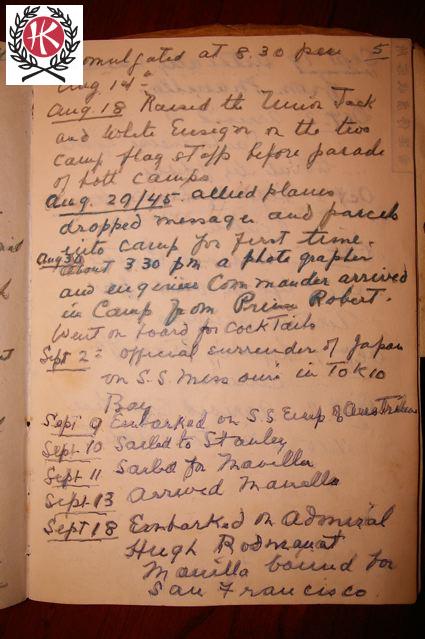 HK
promulgated at 8.30 pm 5
Aug 14th
Aug. 18 Raised the Union Jack
and White Ensign on the two
camp flag staffs before parade
of both camps
Aug. 29/45. allied planes
dropped messages and parcels
into camp for first time.
Aug 30 about 3 30 pm a photographer
and engineer Commander arrived
in Camp from Prince Robert.
Went on board for cocktails
Sept 2 = official surrender of Japan
on S.S. Missouri in Tokio
Bay
Sept 9 Embarked on S S Emp of Australia
Sept 10 Sailed to Stanley
Sept 11 Sailed for Manilla
Sept 13 arrived Manella
Sept 18 Embarked on Admiral
Hugh Rodman at
Manilla bound for
San Francisco